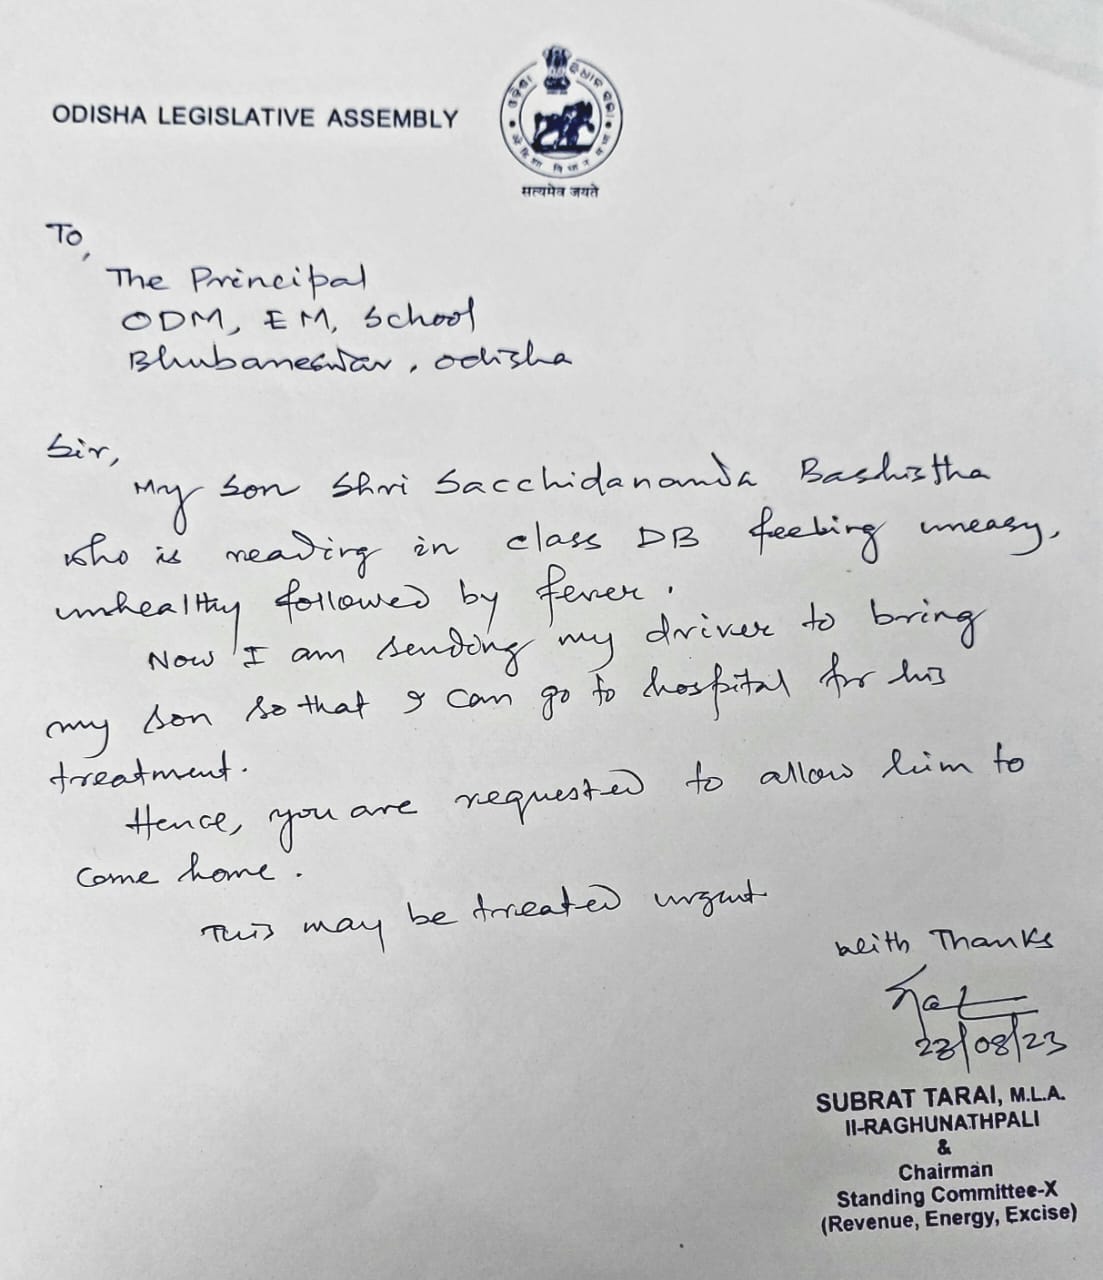 ODISHA LEGISLATIVE ASSEMBLY
सत्यमेव जयते
To,
The Principal
ODM, EM, School
Bhubaneswar, Odisha
Sir,
My Son Shri Sacchidananda Bashistha
who is reading in class DB feeling uneasy,
unhealthy followed by fever.
Now I am sending my driver to bring
my son so that I can go to hospital for his
treatment.
Hence, you are requested to allow him to
come home.
This may be treated urgent
with Thanks
23/08/23
SUBRAT TARAI, M.L.A.
II-RAGHUNATHPALI
&
Chairman
Standing Committee-X
(Revenue, Energy, Excise)